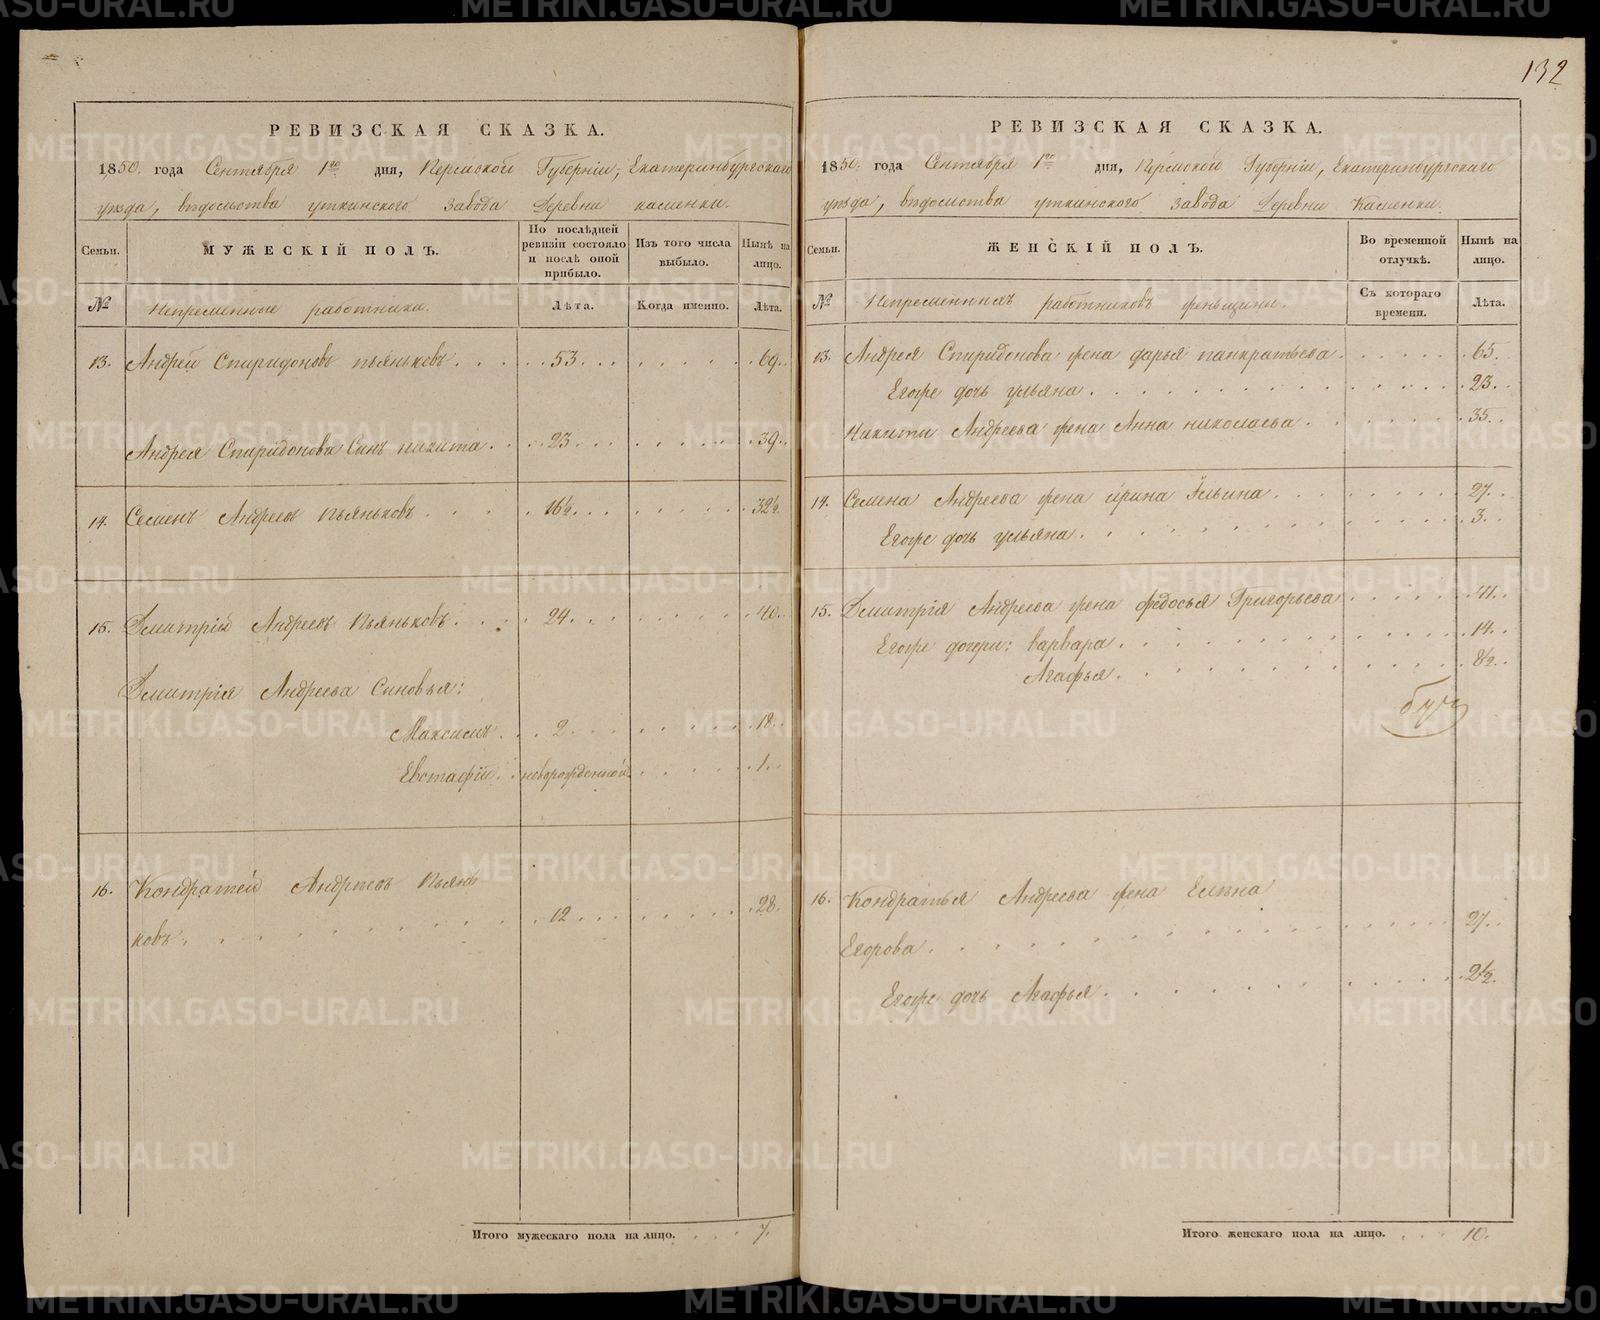 132
РЕВИЗСКАЯ СКАЗКА.
1850. года Сентября 1го дня, Пермской Губернiи, Екатеринбургскаго
уѣзда, вѣдомства уткинскаго завода Деревни каменки.
Семьи.
МУЖЕСКIЙ ПОЛЪ.
По послѣдней ревизiи состояло и послѣ оной прибыло.
Изъ того числа выбыло.
Нынѣ на лицо.
№
Непременные работники.
Лѣта.
Когда именно.
Лѣта.
13. Андрей Спиридоновъ пьянковъ . . . 53. . . . 69.
Андрея Спиридонова Сынъ никита . . . 23 . . . 39.
14. Семенъ Андреевъ Пьянковъ . . . 16½. . . . 32½.
15. Дмитрiй Андреевъ Пьянковъ . . . 24. . . . 40.
Дмитрiя Андреева Сыновья:
Максимъ . . . 2 . . . 18.
Евстафiй . . новорожденной . . . 1.
16. Кондратей Андреевъ Пьян-
ковъ. . . . 12 . . . 28.
Итого мужескаго пола на лицо. . . . 7.
РЕВИЗСКАЯ СКАЗКА.
1850. года Сентября 1го дня, Пермской Губернiи, Екатеринбургскаго
уѣзда, вѣдомства уткинскаго завода Деревни Каменки.
Семьи.
ЖЕНСКIЙ ПОЛЪ.
Во временной отлучкѣ.
Нынѣ на лицо.
№
Непременныхъ работниковъ женщины.
Съ котораго времени.
Лѣта.
13. Андрея Спиридонова жена дарья панкратьева . . . 65.
Егоже дочь ульяна . . . 23.
Никиты Андреева жена Анна николаева . . . 35.
14. Семена Андреева жена ирина Ильина . . . 27.
Егоже дочь ульяна . . . 3.
15. Дмитрiя Андреева жена федосья Григорьева . . . 41.
Егоже дочери: варвара . . . 14.
Агафья . . . 8½.
16. Кондратья Андреева жена Елена
Егорова . . . 27.
Егоже дочь Агафья . . . 2½.
Итого женскаго пола на лицо. . . . 10.
METRIKI.GASO-URAL.RU